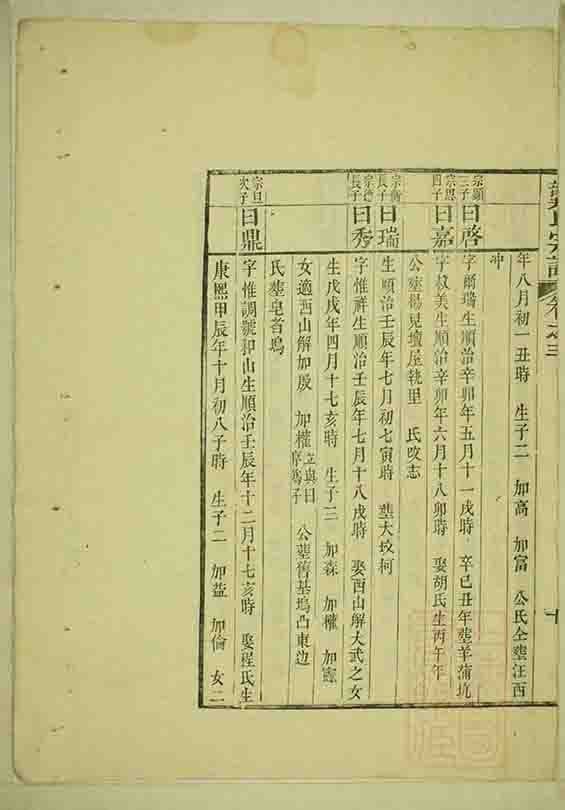 年八月初一丑時 生子二 加高 加富 公氏仝塟汪西
冲
宗顯三子曰啓 字爾瑞生順治辛卯年五月十一戌時 卒己丑年塟羊蒲坑
宗恩四子曰嘉 字叔美生順治辛卯年六月十八卯時 娶胡氏生丙午年
公塟楊見壇屋執里 氏改志
長子曰瑞 生順治壬辰年七月初七寅時 塟大坟柯
長子曰秀 字惟祥生順治壬辰年七月十八戌時 娶西山解大武之女
生戊戌年四月十七亥時 生子三 加森 加權 加
女適西山解加殷 加權立與曰 公塟舊基塢凸東边
氏塟皂者塢
宗旦次子曰鼎 字惟調號和山生順治壬辰年十二月十七亥時 娶程氏生
康熙甲辰年十月初八子時 生子二 加益 加倫 女二
宗譜
卷之三
十